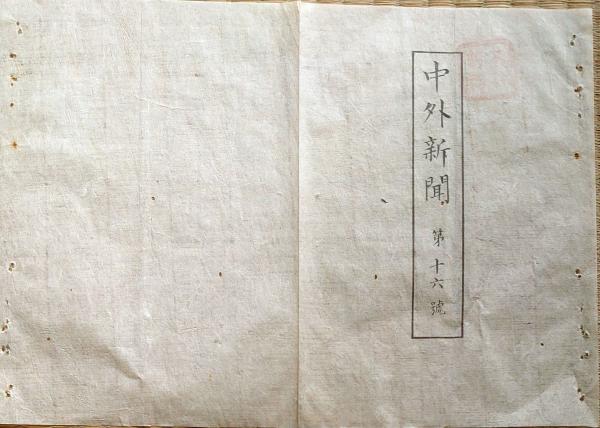 中外新聞 第十六號